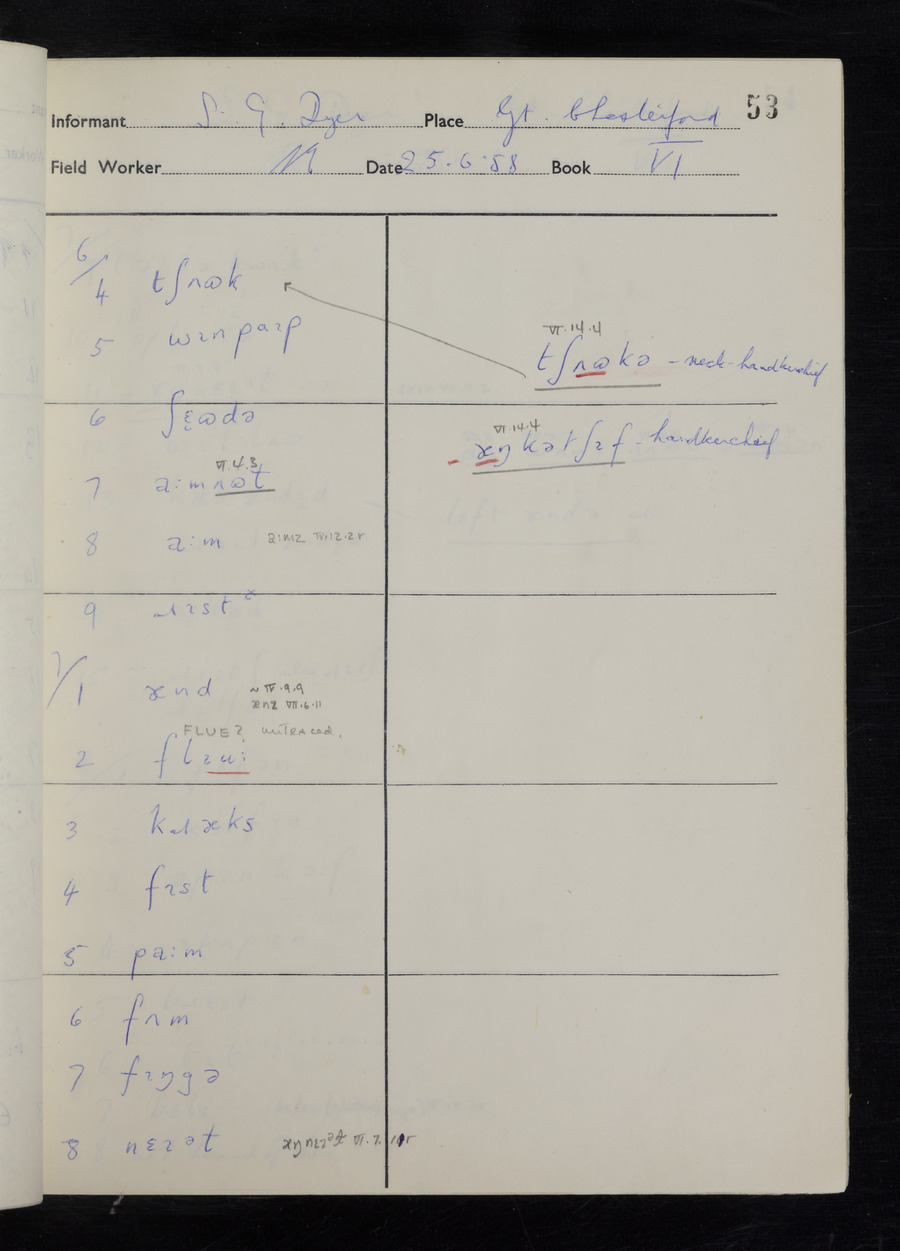 53
Informant S. G. Dyer Place Gt. Chesterford
Field Worker Date 25.6.58 Book VI
6/4 tʃʌɷk
5 wɪnpaɪp
6 ʃɛɷdə
VI.4.3
7 ɑ:mʌɷt
8 ɑ:m ɑ:mz IV.12.2r
9 ɹɪst
7/1 ænd ~ IV.9.9
ænz VII.6.11
FLUE?
2 flɪu:
3 kɹæks
4 fɪst
5 pɑ:m
6 fʌm
7 fɪŋgə
8 VI.7.11r
VI.14.4
tʃʌɷkə - neck-handkerchief
VI 14.4
æŋkətʃɪf - handkerchief